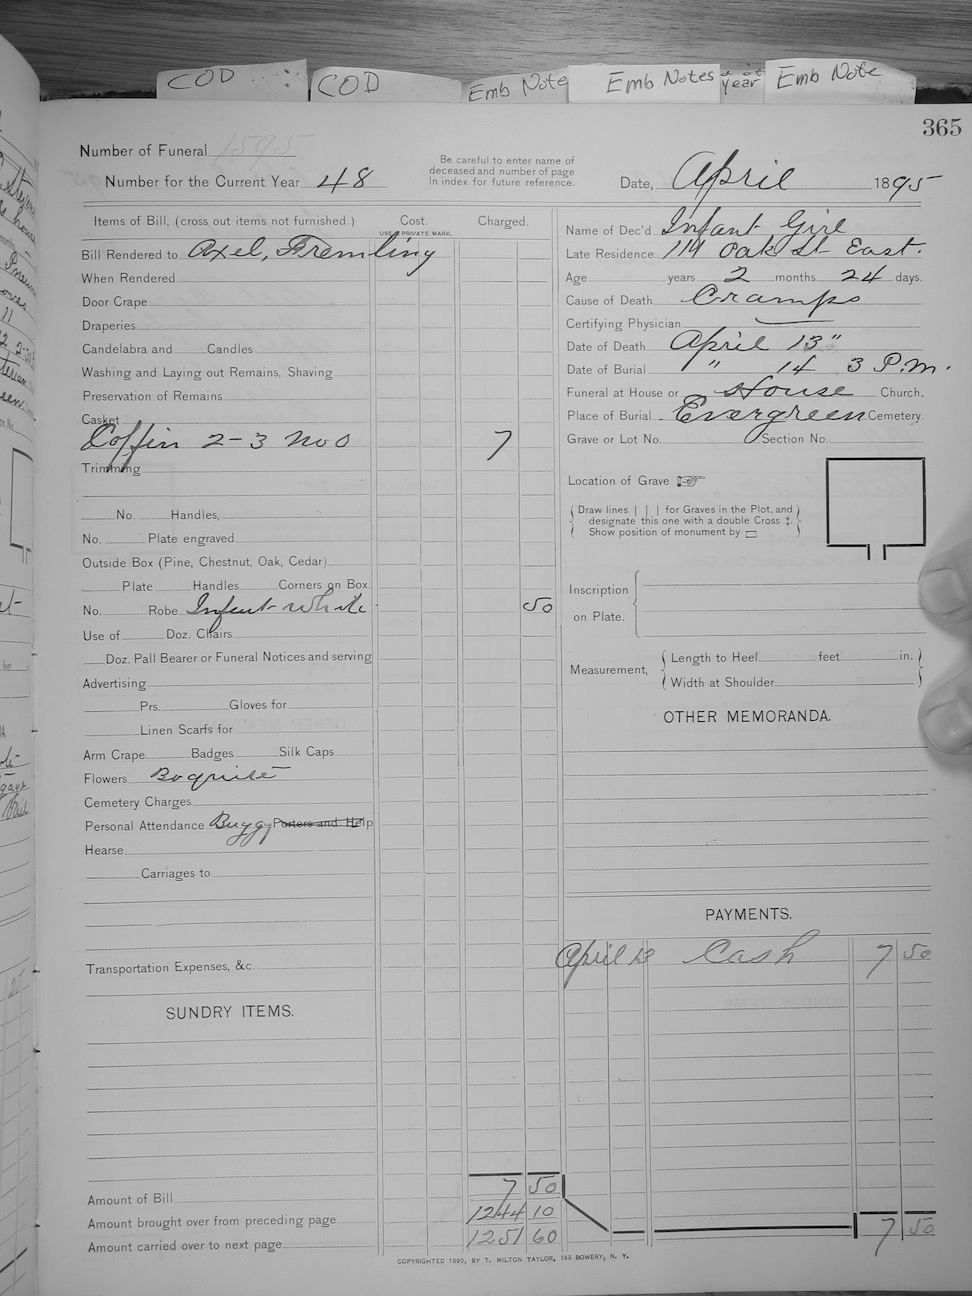 COD
COD
Emb Note
Emb Notes
year
Emb Note
365
Number of Funeral 1595
Number for the Current Year 48
Be careful to enter name of
deceased and number of page
in index for future reference.
Date, April 1895
Items of Bill, (cross out items not furnished.) Cost. Charged.
USE PRIVATE MARK.
Bill Rendered to Axel, Fremling
When Rendered
Door Crape
Draperies
Candelabra and Candles
Washing and Laying out Remains, Shaving
Preservation of Remains
Casket
Coffin 2-3 No 0 7
Trimming
No. Handles,
No. Plate engraved
Outside Box (Pine, Chestnut, Oak, Cedar)
Plate Handles Corners on Box
No. Robe Infant white 50
Use of Doz. Chairs
Doz. Pall Bearer or Funeral Notices and serving
Advertising
Prs. Gloves for
Linen Scarfs for
Arm Crape Badges Silk Caps
Flowers Boquite
Cemetery Charges
Personal Attendance Buggy Porters and Help
Hearse
Carriages to
Transportation Expenses, &c.
SUNDRY ITEMS.
Amount of Bill 7 50
Amount brought over from preceding page 1244 10
Amount carried over to next page 1251 60
Name of Dec'd Infant Girl
Late Residence 114 Oak St East.
Age years 2 months 24 days.
Cause of Death Cramps
Certifying Physician
Date of Death April 13"
Date of Burial " 14 3 P.M.
Funeral at House or House Church.
Place of Burial Evergreen Cemetery.
Grave or Lot No. Section No.
Location of Grave
Draw lines | | | for Graves in the Plot, and
designate this one with a double Cross ‡.
Show position of monument by
Inscription
on Plate.
Measurement, Length to Heel feet in.
Width at Shoulder
OTHER MEMORANDA.
PAYMENTS.
April 13 Cash 7 50
7 50
COPYRIGHTED 1890, BY T. MILTON TAYLOR, 163 BOWERY, N. Y.